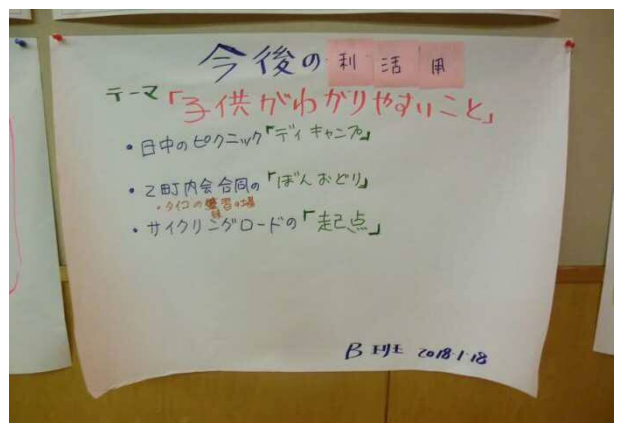 今後の利活用
テーマ「子供がわかりやすいこと」
・日中のピクニック「デイキャンプ」
・2町内会合同の「ぼんおどり」
・タイコの練習の場
・サイクリングロードの「起点」
B班 2018・1・18